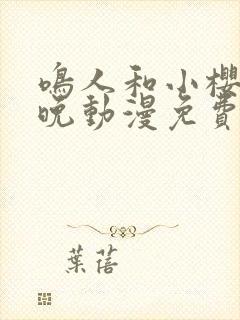 鳴人和小櫻
晚動漫免費
葉蓓